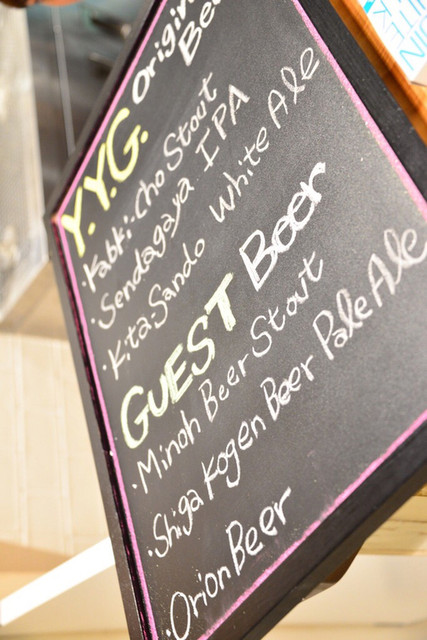 Y.Y.G. Original Beer
· Kabki-Cho Stout
· Sendagaya IPA
· Kita-Sando White Ale
GUEST Beer
· Minoh Beer Stout
· Shiga Kogen Beer Pale Ale
· Orion Beer